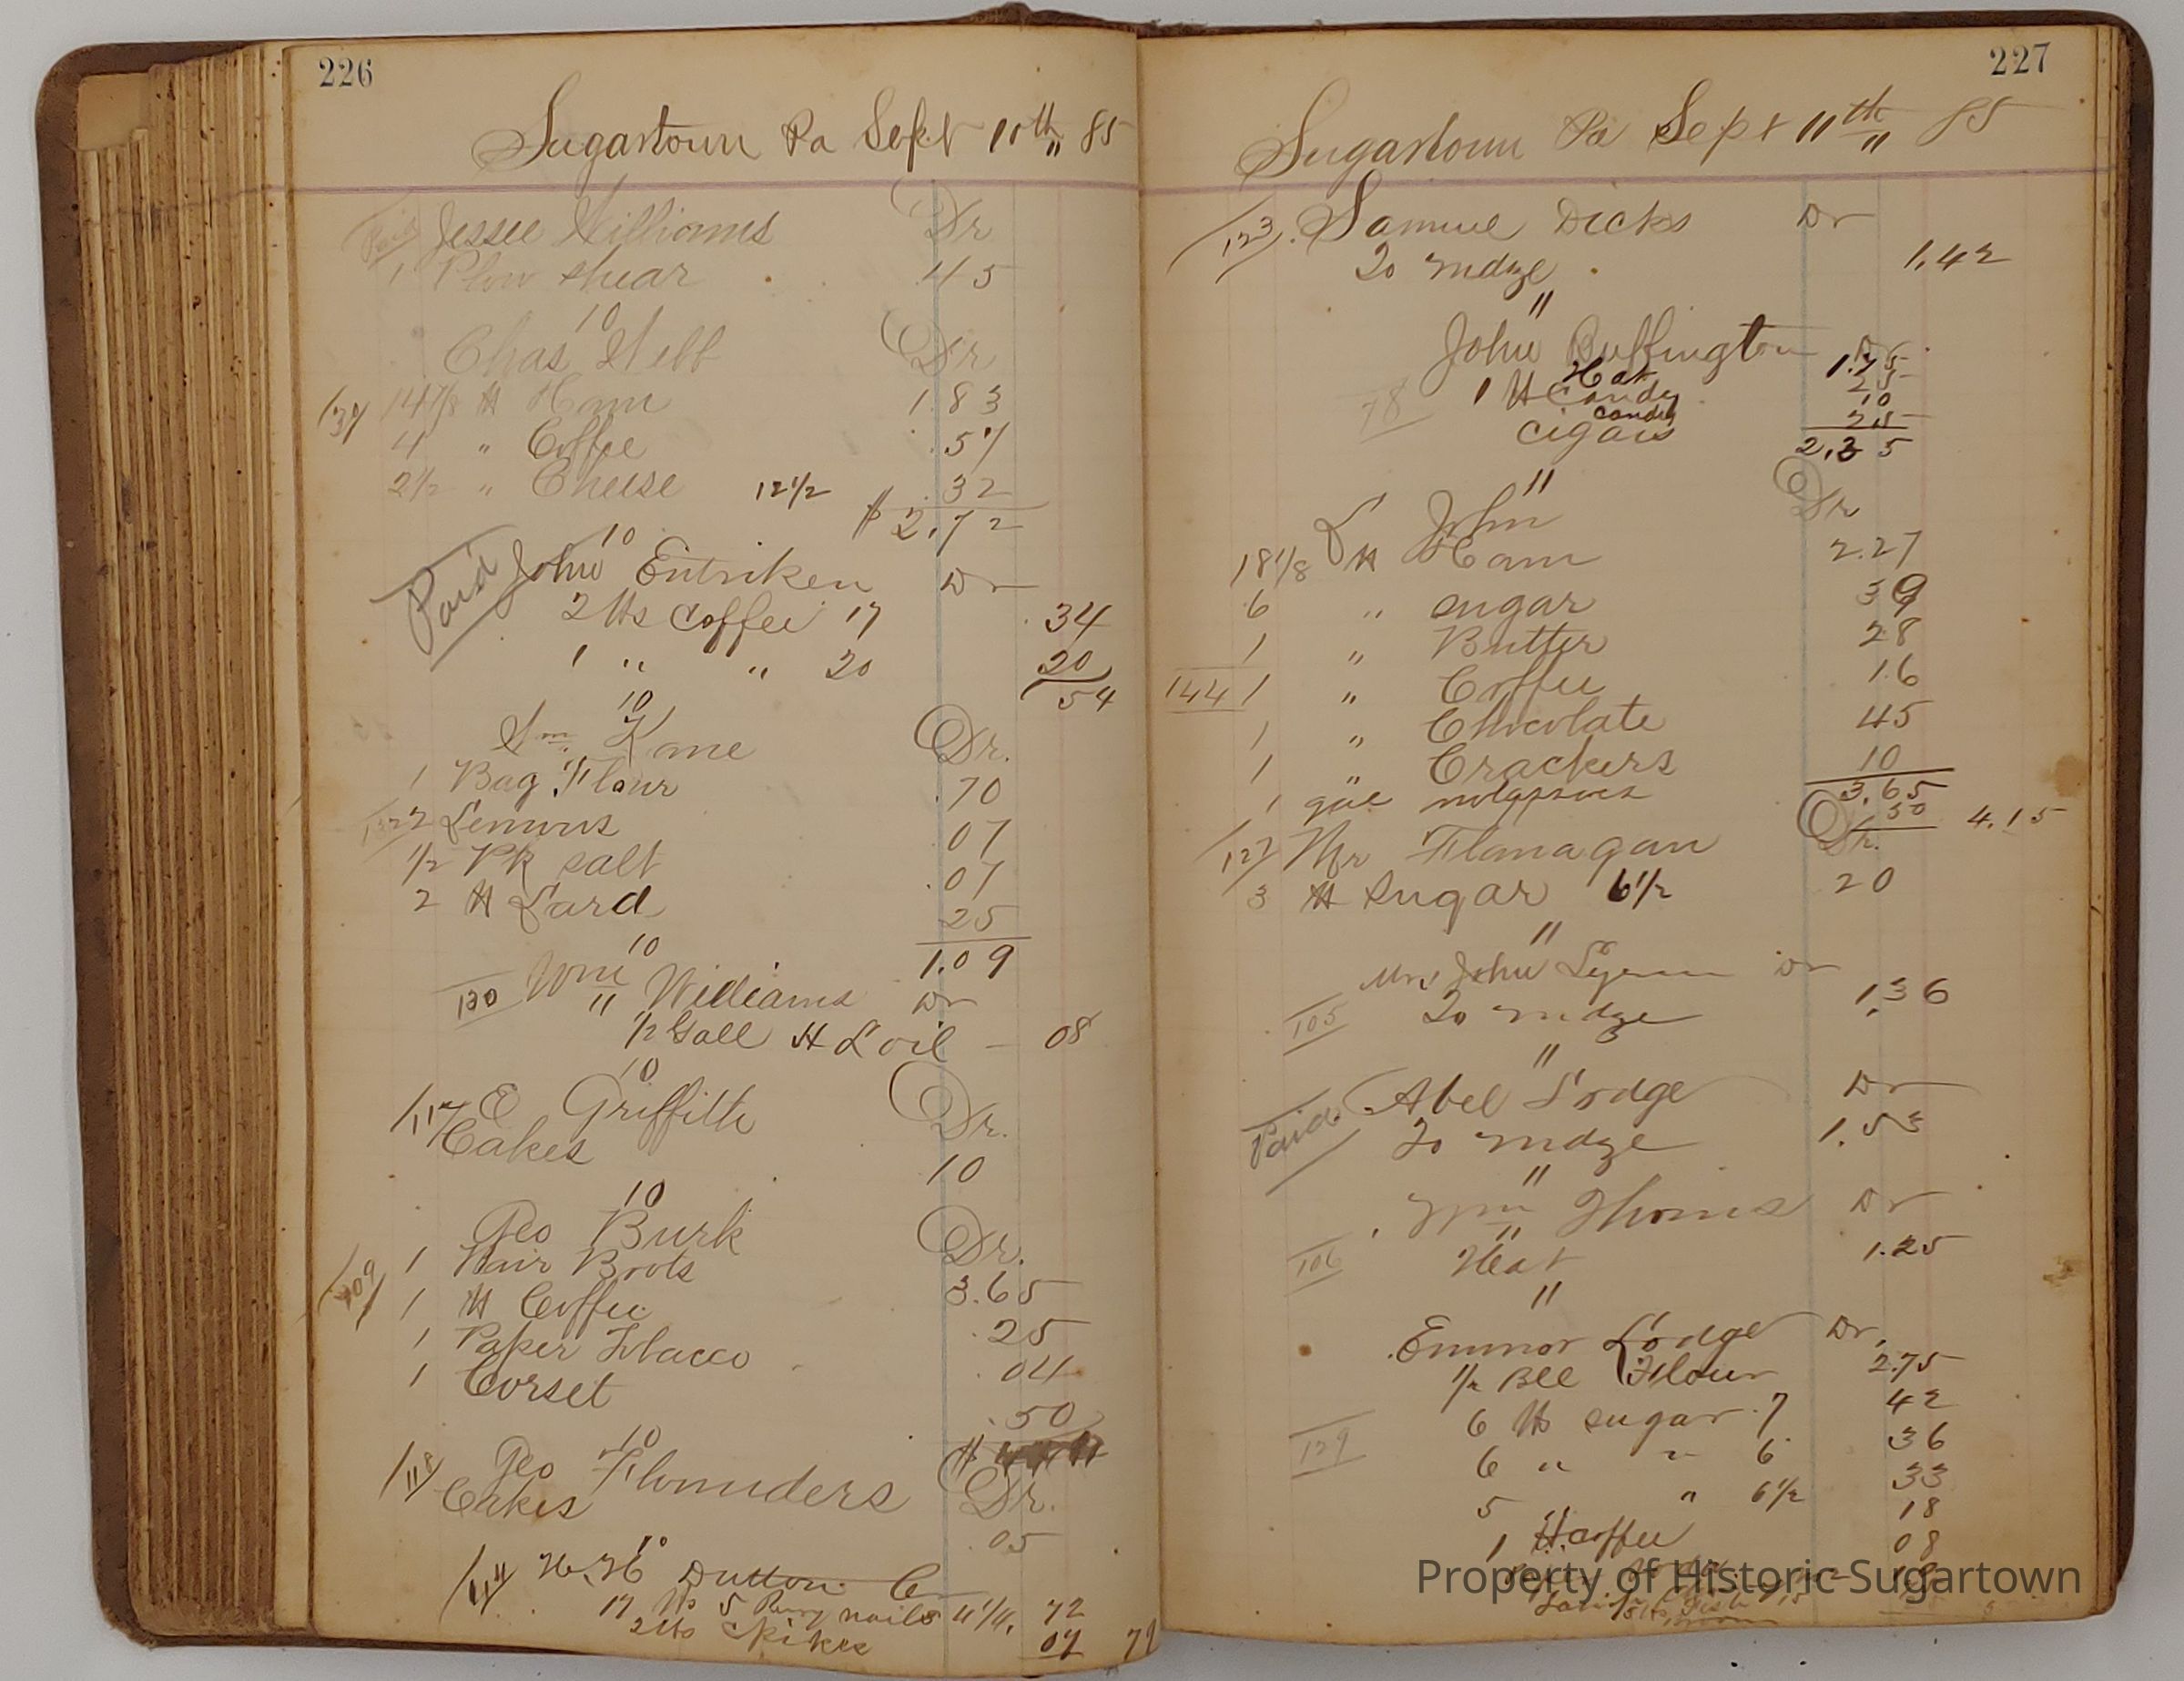 226
Sugartown Pa Sept 10th " 85
Paid Jessee Williams Dr
1 Plow shear 45
10
Chas Webb Dr
139 14 7/8 lb Ham 1.83
4 " Coffee .57
2 1/2 " Cheese 12 1/2 32
$ 2.72
10
Paid John Entriken Dr
2 lbs Coffee 17 .34
1 " " 20 20
54
10
Wm Kane Dr.
1 Bag Flour .70
Lemons 07
1/2 Pk salt .07
2 lb Lard 25
1.09
10
130 Wm " Williams Dr
1/2 Gall H L oil — 08
10
E Griffith Dr.
Cakes 10
10
Geo Burk Dr.
109 1 Pair Boots 3.65
1 lb Coffee .25
1 Paper Tobacco .04
1 Corset .50
10
118 Geo Flounders Dr.
Cakes .05
10
114 H. H Dutton Cr
17 lbs 5 Peny nails 4 1/4. 72
2 lbs Spikes 07 79
227
Sugartown Pa Sept 11th " 85
123. Samuel Dicks Dr
To mdze 1.42
"
John Buffington Dr
Hat 1.75
78 1 lb Candy 25
candy 10
cigars 25
2.35
"
L John Dr
18 1/8 lb Ham 2.27
6 " sugar 39
1 " Butter 28
144 1 " Coffee 16
1 " Chocolate 45
1 " Crackers 10
3.65
1 gal molasses 50 4.15
127 Mr Flanagan Dr.
3 lb Sugar 6 1/2 20
"
Mrs John Dr
105 To mdze 1.36
"
Paid. Abel Lodge Dr
To mdze 1.53
"
Wm Thomas Dr
106 Hat 1.25
"
Emmor Lodge Dr.
1/2 Bbl Flour 2.75
6 lbs sugar 7 42
129 6 " " 6 36
5 " 6 1/2 33
1 lb coffee 18
08
Property of Historic Sugartown